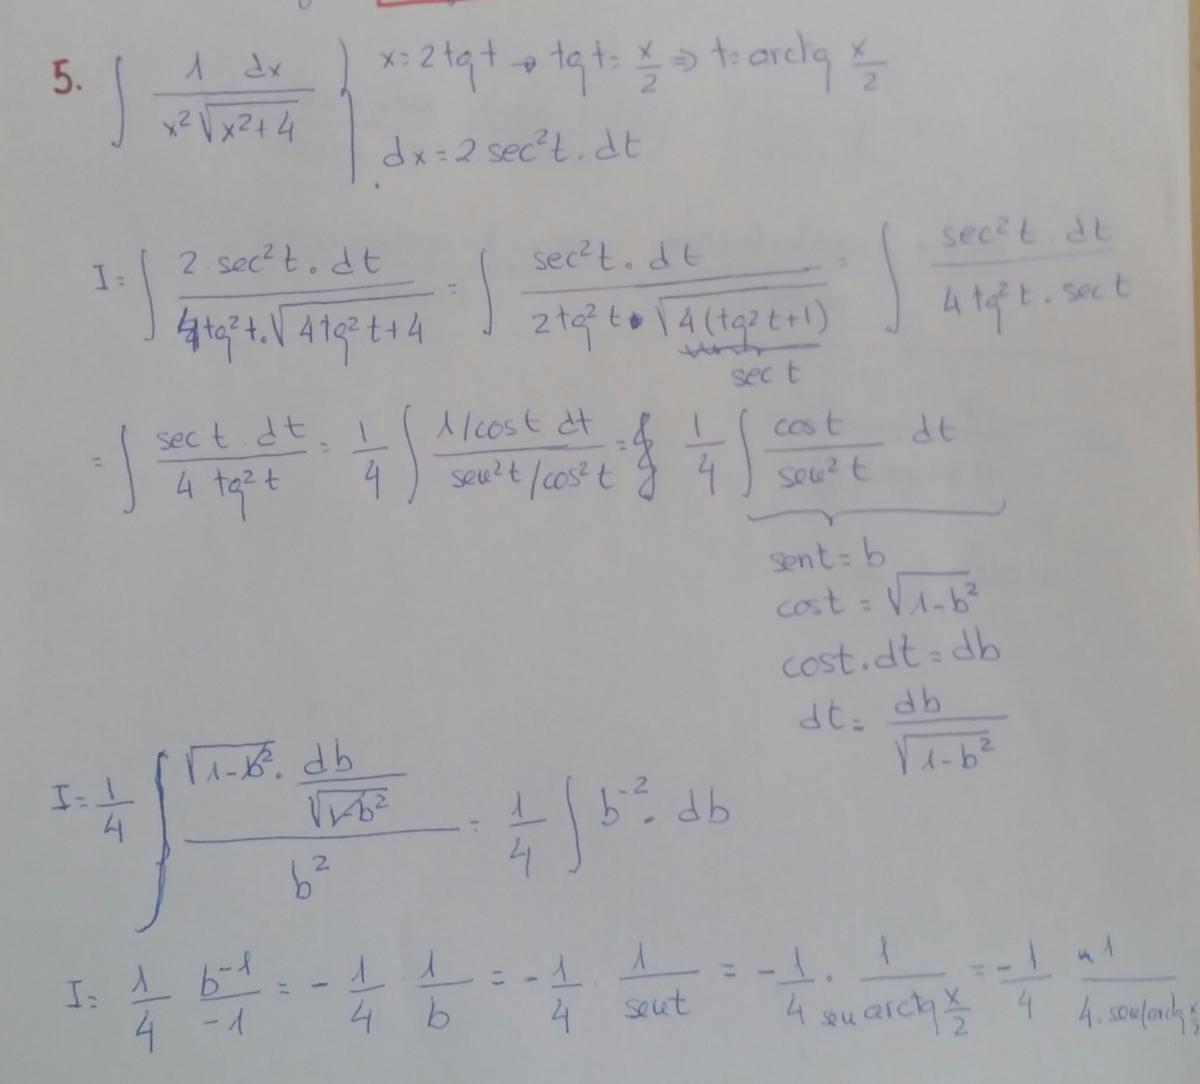 5. ∫ 1 dx / x²√(x²+4) } x = 2 tg t → tg t = x/2 ⇒ t = arctg x/2
dx = 2 sec²t . dt
I = ∫ 2 sec²t . dt / 4tg²t . √(4tg²t+4) = ∫ sec²t . dt / 2tg²t • √(4(tg²t+1)) = ∫ sec²t dt / 4tg²t . sec t
sec t
= ∫ sec t dt / 4 tg²t = 1/4 ∫ (1/cos t dt) / (sen²t/cos²t) = 1/4 ∫ cos t / sen²t dt
sen t = b
cos t = √(1-b²)
cos t . dt = db
dt = db / √(1-b²)
I = 1/4 ∫ (√(1-b²) . db/√(1-b²)) / b² = 1/4 ∫ b⁻² . db
I = 1/4 b⁻¹/-1 = - 1/4 1/b = - 1/4 . 1/sen t = - 1/4 . 1/sen arctg x/2 = - 1/4 1/4.sen(arctg x/2